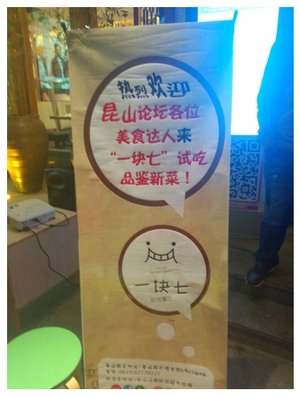 热烈欢迎
昆山论坛各位
美食达人来
“一块七”试吃
品鉴新菜！
一块七